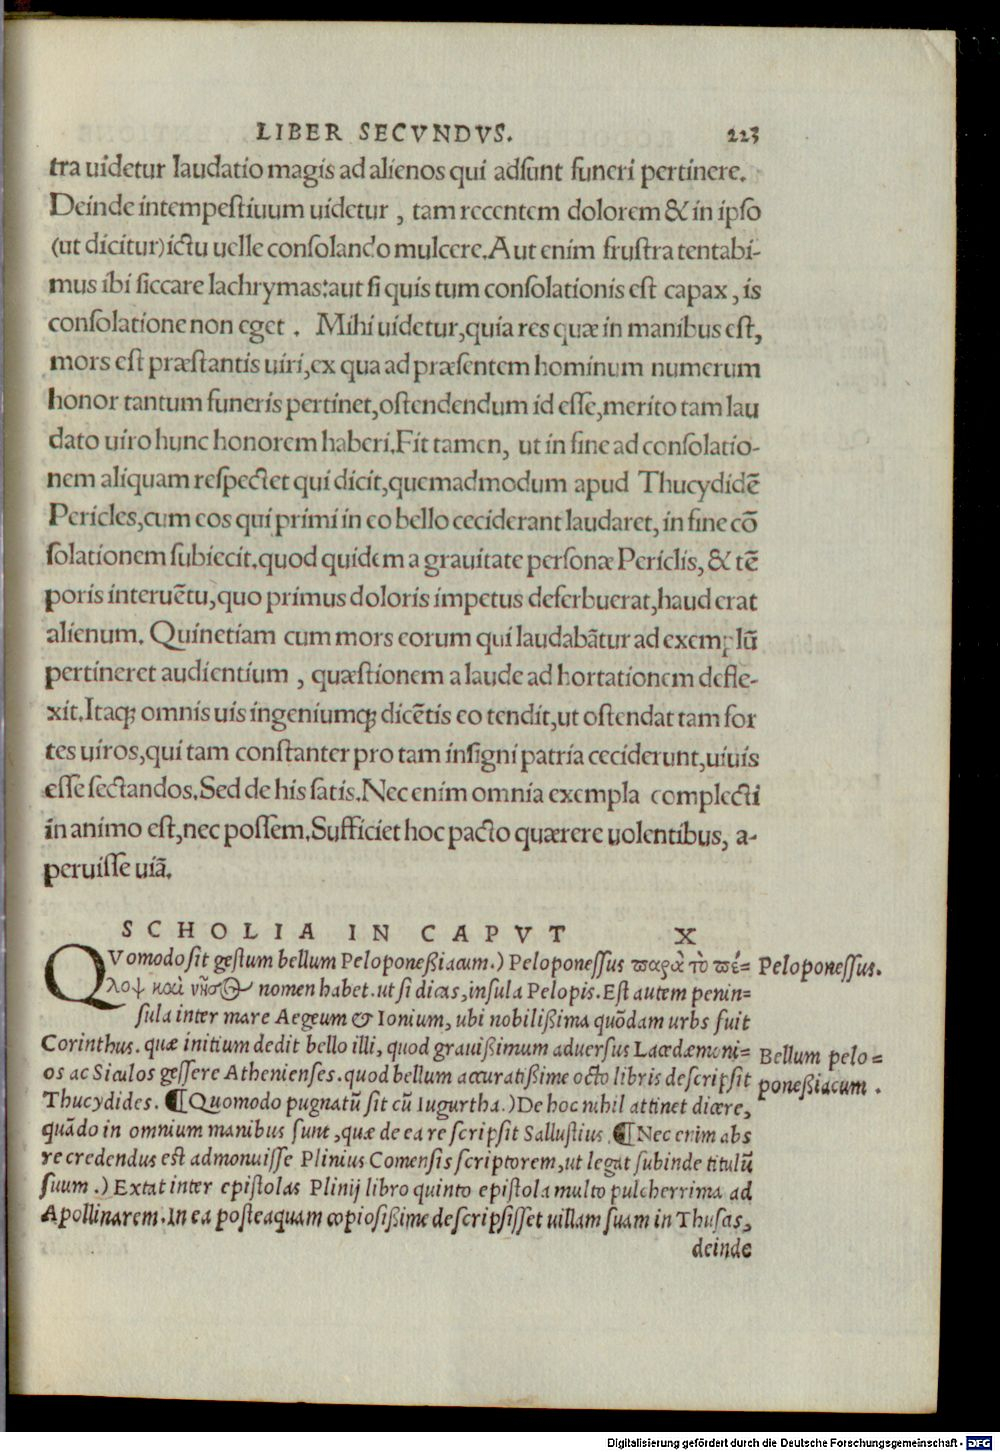 LIBER SECVNDVS. 223
tra uidetur laudatio magis ad alienos qui adſunt funeri pertinere.
Deinde intempeſtiuum uidetur, tam recentem dolorem & in ipſo
(ut dicitur) ictu uelle conſolando mulcere. Aut enim fruſtra tentabi-
mus ibi ſiccare lachrymas: aut ſi quis tum conſolationis eſt capax, is
conſolatione non eget. Mihi uidetur, quia res quæ in manibus eſt,
mors eſt præſtantis uiri, ex qua ad præſentem hominum numerum
honor tantum funeris pertinet, oſtendendum id eſſe, merito tam lau
dato uiro hunc honorem haberi. Fit tamen, ut in fine ad conſolatio-
nem aliquam reſpectet qui dicit, quemadmodum apud Thucydidẽ
Pericles, cum eos qui primi in eo bello ceciderant laudaret, in fine cõ
ſolationem ſubiecit. quod quidem a grauitate perſonæ Periclis, & tẽ
poris interuẽtu, quo primus doloris impetus deferbuerat, haud erat
alienum. Quinetiam cum mors eorum qui laudabãtur ad exemplũ
pertineret audientium, quæſtionem a laude ad hortationem defle-
xit. Itaq; omnis uis ingeniumq; dicẽtis eo tendit, ut oſtendat tam for
tes uiros, qui tam conſtanter pro tam inſigni patria ceciderunt, uiuis
eſſe ſectandos. Sed de his ſatis. Nec enim omnia exempla complecti
in animo eſt, nec poſſem. Sufficiet hoc pacto quærere uolentibus, a-
peruiſſe uiã.
SCHOLIA IN CAPVT X
QVomodo ſit geſtum bellum Peloponeßiacum.) Peloponeſſus ϖαρὰ τὸ ϖέ=
λοψ καὶ νῆσος nomen habet. ut ſi dicas, inſula Pelopis. Eſt autem penin=
ſula inter mare Aegeum & Ionium, ubi nobilißima quõdam urbs fuit
Corinthus. quæ initium dedit bello illi, quod grauißimum aduerſus Lacedæmoni=
os ac Siculos geſſere Athenienſes. quod bellum accuratißime octo libris deſcripſit
Thucydides. ¶ Quomodo pugnatũ ſit cũ Iugurtha.) De hoc nihil attinet dicere,
quãdo in omnium manibus ſunt, quæ de ea re ſcripſit Salluſtius. ¶ Nec enim abs
re credendus eſt admonuiſſe Plinius Comenſis ſcriptorem, ut legat ſubinde titulũ
ſuum.) Extat inter epiſtolas Plinij libro quinto epiſtola multo pulcherrima ad
Apollinarem. In ea poſteaquam copioſißime deſcripſiſſet uillam ſuam in Thuſcis,
deinde
Peloponeſſus.
Bellum pelo=
poneßiacum.
Digitalisierung gefördert durch die Deutsche Forschungsgemeinschaft - DFG